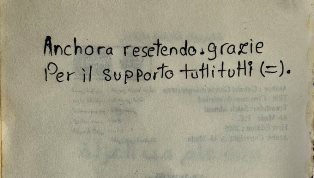 Anchora resetendo. grazie
Per il supporto tutti tutti (=).